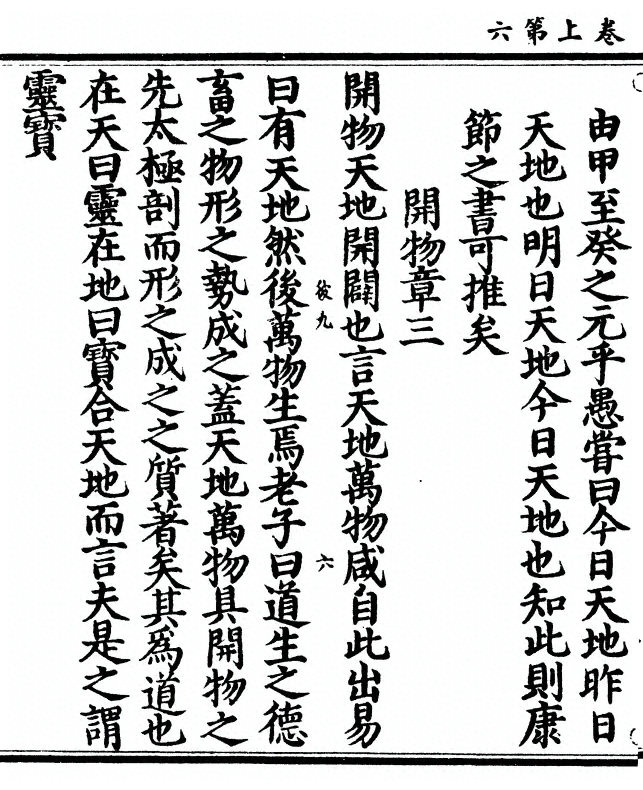 卷上第六
由甲至癸之元乎愚嘗曰今日天地昨日
天地也明日天地今日天地也知此則康
節之書可推矣
開物章三
開物天地開闢也言天地萬物咸自此出易
曰有天地然後萬物生焉老子曰道生之德
後九
六
畜之物形之勢成之蓋天地萬物具開物之
先太極剖而形之成之之質著矣其為道也
在天曰靈在地曰寶合天地而言夫是之謂
靈寶